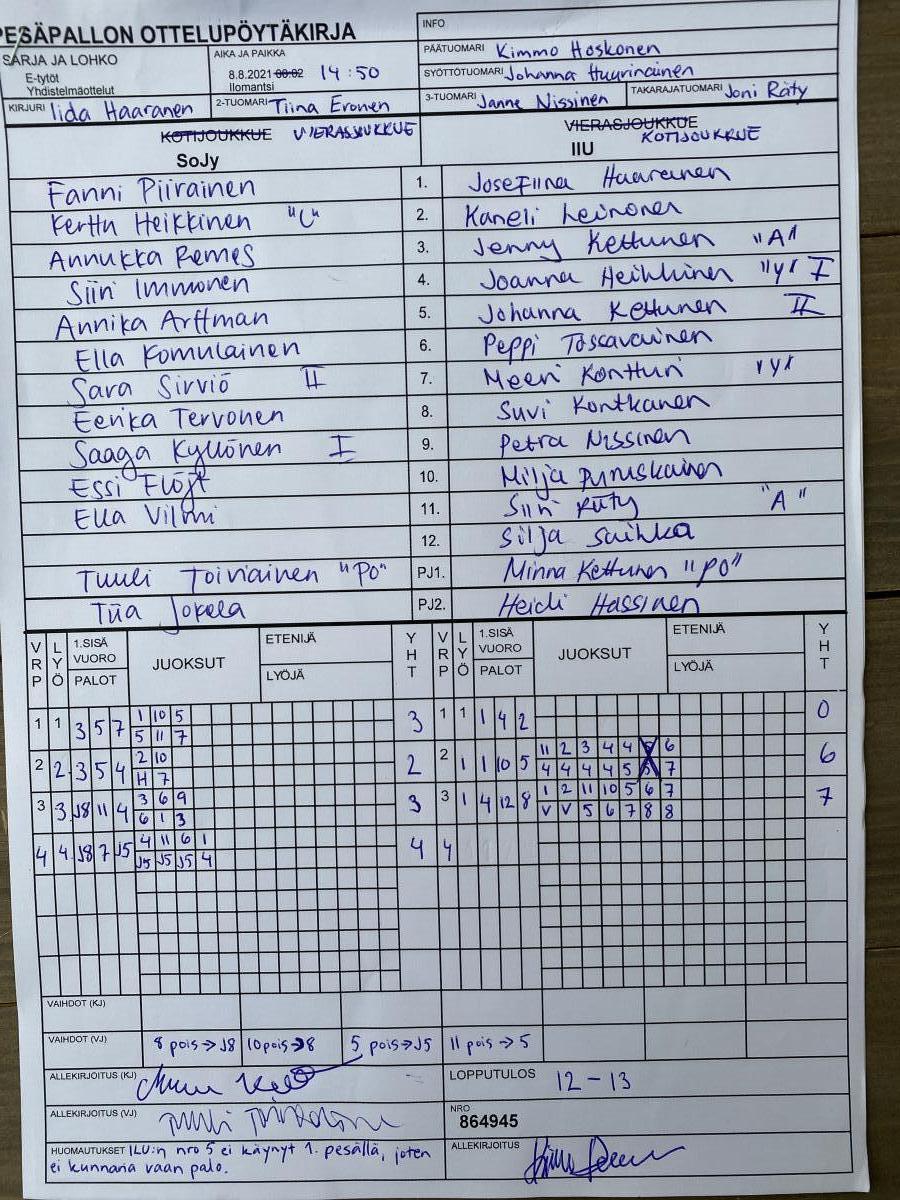 PESÄPALLON OTTELUPÖYTÄKIRJA
INFO
SARJA JA LOHKO
E-tytöt
Yhdistelmäottelut
AIKA JA PAIKKA
8.8.2021 00:02 14:50
Ilomantsi
PÄÄTUOMARI Kimmo Hoskonen
SYÖTTÖTUOMARI Johanna Huurinainen
KIRJURI Iida Haaranen
2-TUOMARI Tiina Eronen
3-TUOMARI Janne Nissinen
TAKARAJATUOMARI Joni Räty
KOTIJOUKKUE VIERASJOUKKUE
SoJy
VIERASJOUKKUE
KOTIJOUKKUE
IIU
Fanni Piirainen 1. Josefiina Haaranen
Kerttu Heikkinen "C" 2. Kaneli Leinonen
Annukka Remes 3. Jenny Kettunen "A"
Siiri Immonen 4. Joanna Heikkinen "y" I
Annika Arffman 5. Johanna Kettunen II
Ella Komulainen 6. Peppi Toscavainen
Sara Sirviö II 7. Meeri Kontturi "y"
Eerika Tervonen 8. Suvi Kontkanen
Saaga Kyllönen I 9. Petra Nissinen
Essi Flöjt 10. Milja
Ella Vilmi 11. Siiri "A"
12. Silja
Tuuli Toiviainen "PO" PJ1. Minna Kettunen "PO"
Tiia Jokela PJ2. Heidi Hassinen
VRP LYÖ 1.SISÄ VUORO PALOT JUOKSUT ETENIJÄ LYÖJÄ YHT VRP LYÖ 1.SISÄ VUORO PALOT JUOKSUT ETENIJÄ LYÖJÄ YHT
1 1 3 5 7 1 10 5 3 1 1 1 4 2 0
5 11 7
2 2 3 5 4 2 10 2 2 1 1 10 5 11 2 3 4 4 5 6 6
H 7 4 4 4 4 5 5 7
3 3 J8 11 4 3 6 9 3 3 1 4 12 8 1 2 11 10 5 6 7 7
6 1 3 V V 5 6 7 8 8
4 4 J8 7 J5 4 11 6 1 4 4
J5 J5 J5 4
VAIHDOT (KJ)
VAIHDOT (VJ) 8 pois→J8 10pois→8 5 pois→J5 11 pois→5
ALLEKIRJOITUS (KJ)
LOPPUTULOS 12-13
ALLEKIRJOITUS (VJ)
NRO
864945
HUOMAUTUKSET ILU:n nro 5 ei käynyt 1. pesällä, joten
ei kunnaria vaan palo.
ALLEKIRJOITUS